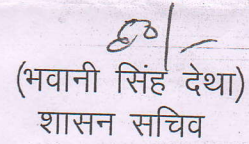 (भवानी सिंह देथा)
शासन सचिव